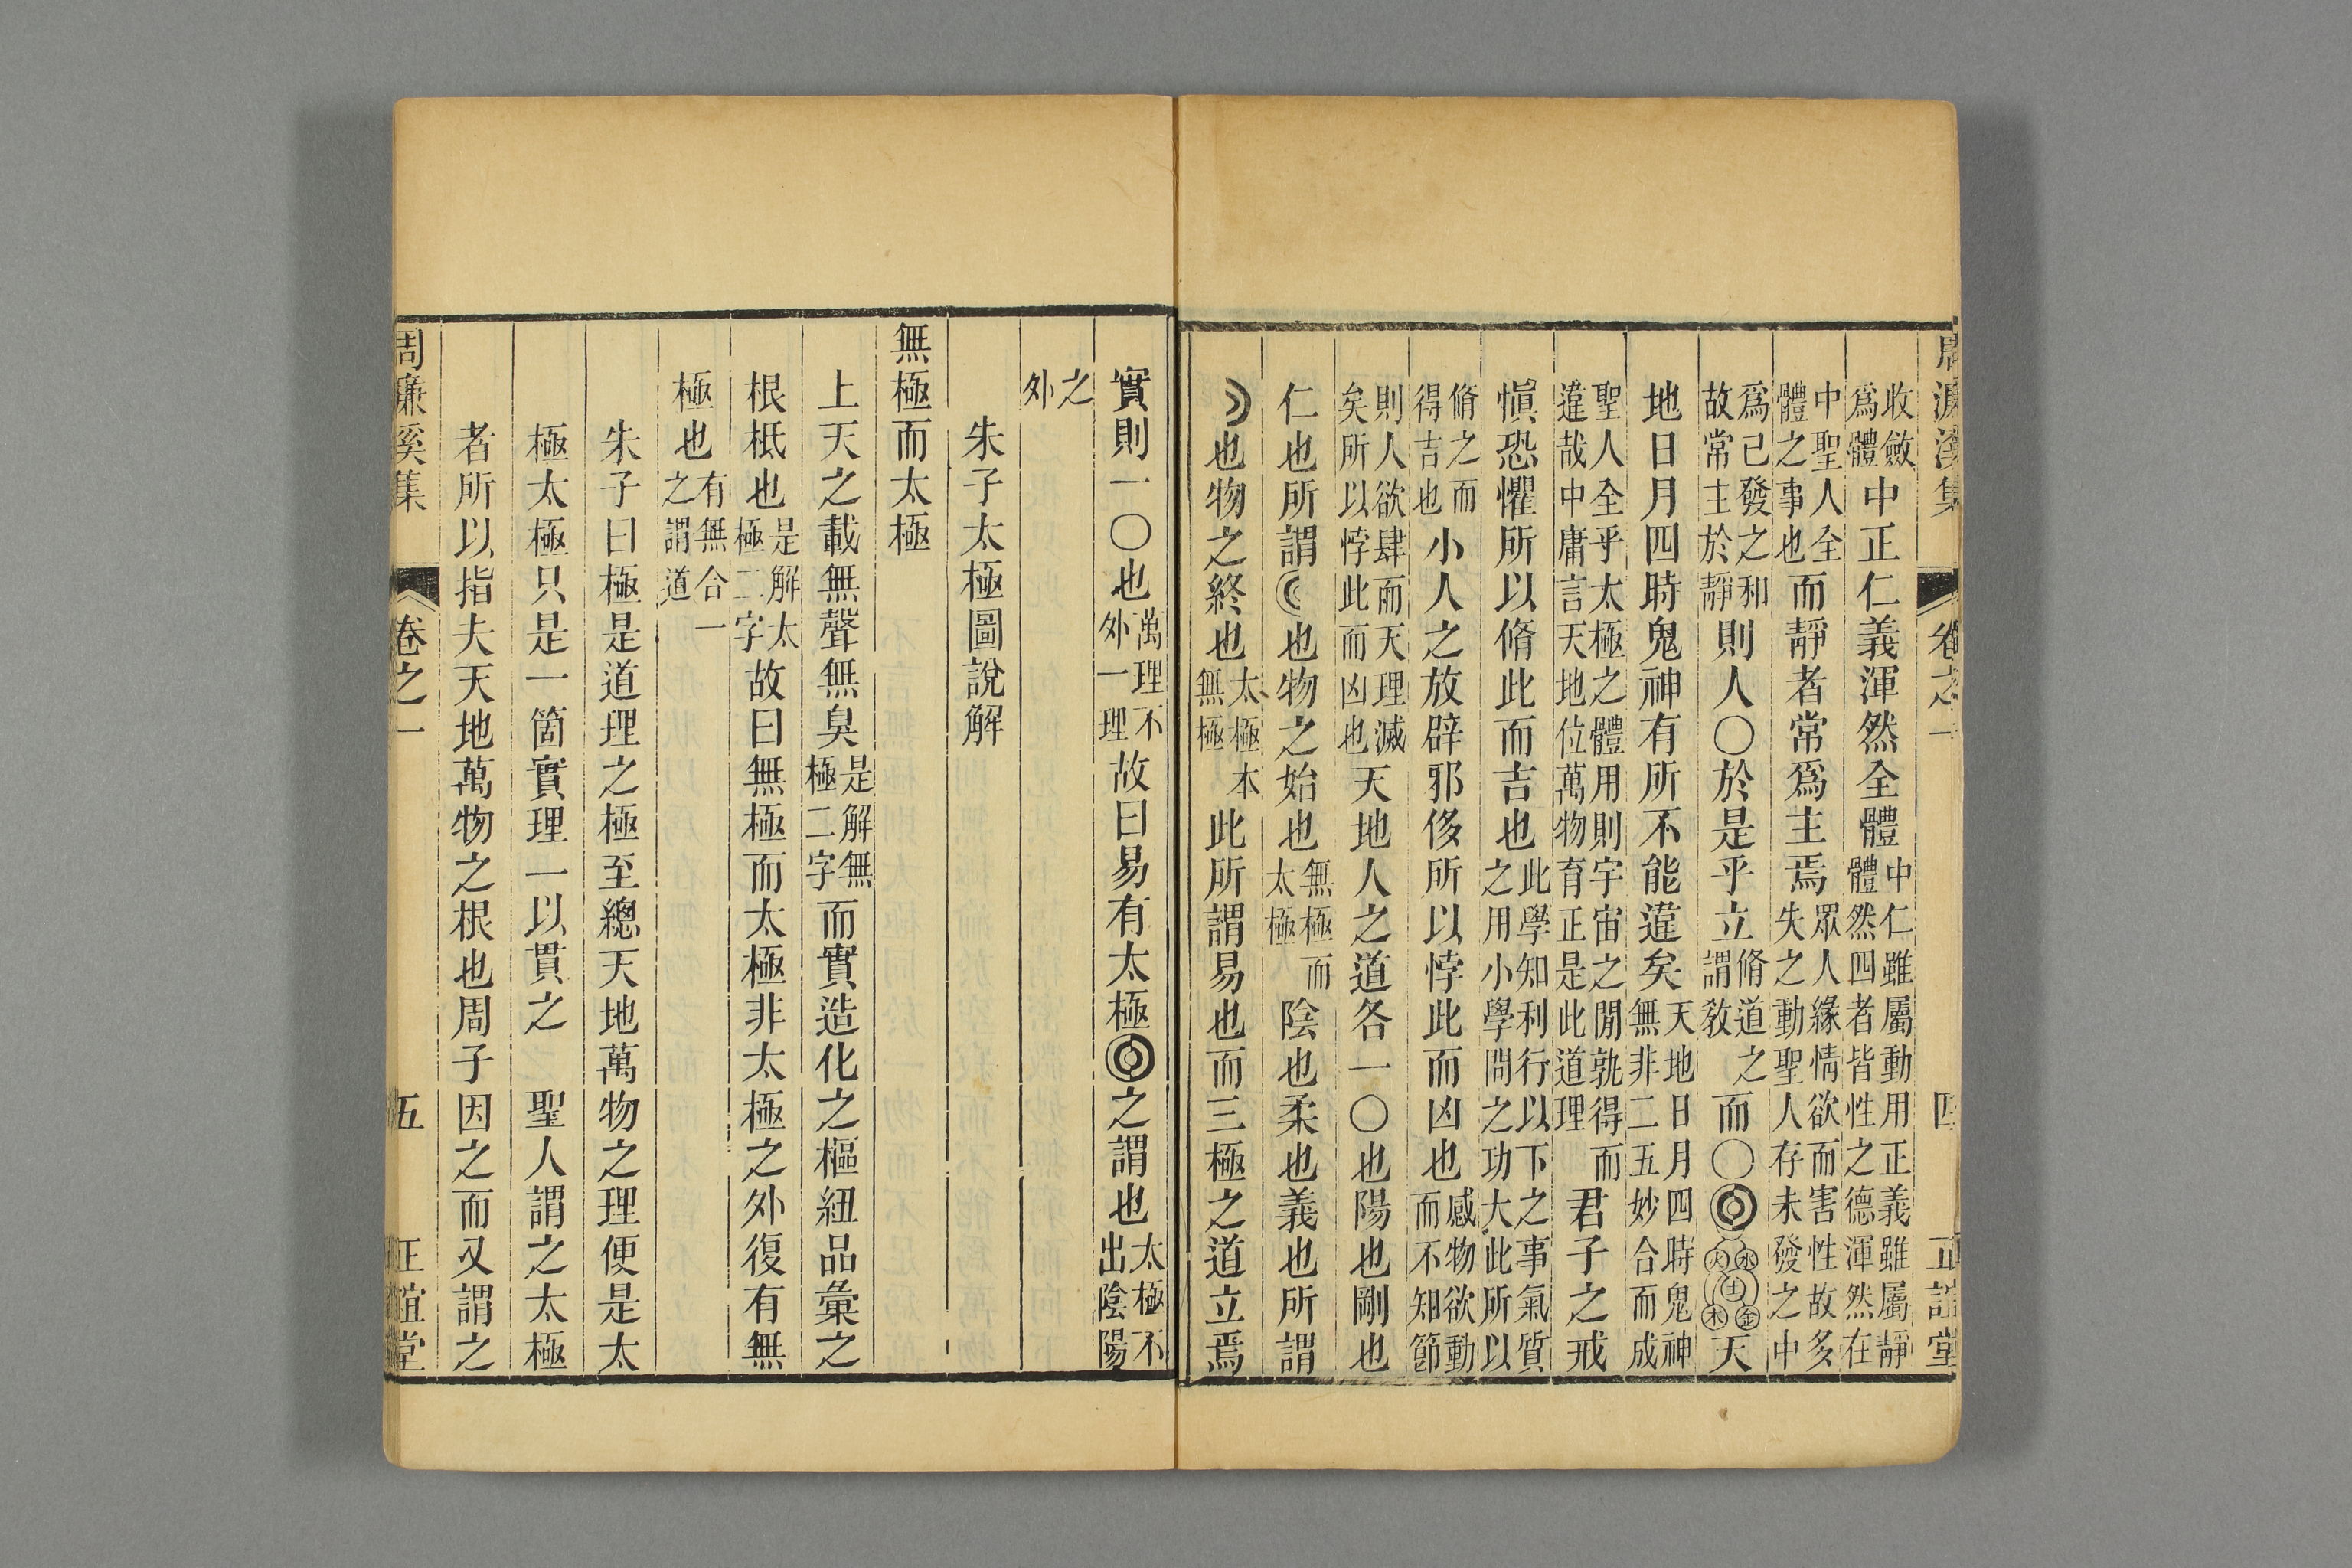 周濂溪集 卷之一 四 正誼堂
收斂爲體中正仁義渾然全體中仁雖屬動用正義雖屬靜體然四者皆性之德渾然在
中聖人全體之事也而靜者常爲主焉眾人緣情欲而害性故多失之動聖人存未發之中
爲已發之和故常主於靜則人〇於是乎立脩道之謂敎而〇◎水火土金木天
地日月四時鬼神有所不能違矣天地日月四時鬼神無非二五妙合而成
聖人全乎太極之體用則宇宙之閒孰得而違哉中庸言天地位萬物育正是此道理君子之戒
愼恐懼所以脩此而吉也此學知利行以下之事氣質之用小學問之功大此所以
脩之而得吉也小人之放辟邪侈所以悖此而凶也感物欲動而不知節
則人欲肆而天理滅矣所以悖此而凶也天地人之道各一〇也陽也剛也
仁也所謂☾也物之始也無極而太極陰也柔也義也所謂
☽也物之終也太極本無極此所謂易也而三極之道立焉
實則一〇也萬理不外一理故曰易有太極◎之謂也太極不出陰陽
之外
朱子太極圖說解
無極而太極
上天之載無聲無臭是解無極二字而實造化之樞紐品彙之
根柢也是解太極二字故曰無極而太極非太極之外復有無
極也有無合一之謂道
朱子曰極是道理之極至總天地萬物之理便是太
極太極只是一箇實理一以貫之 聖人謂之太極
者所以指夫天地萬物之根也周子因之而又謂之
周濂溪集 卷之一 五 正誼堂